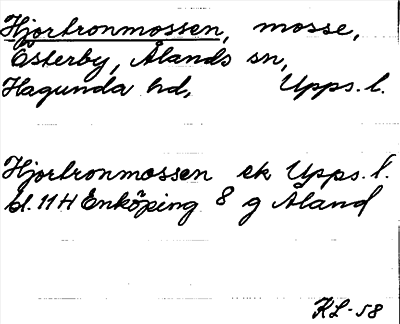 Hjortronmossen, mosse,
Österby, Ålands sn,
Hagunda hd, Upps. l.
Hjortronmossen ek Upps. l.
bl. 11 H Enköping 8 g Åland
KL-58